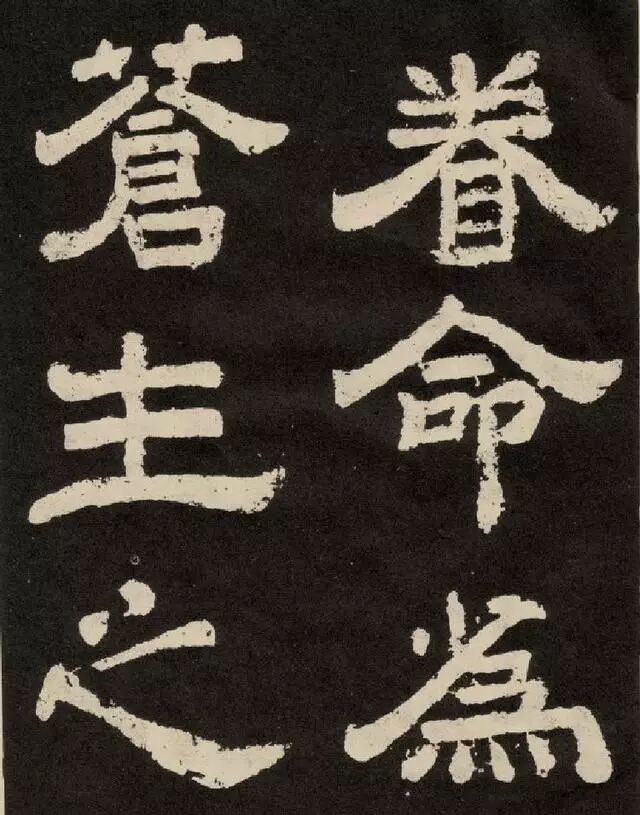 眷命為
蒼生之